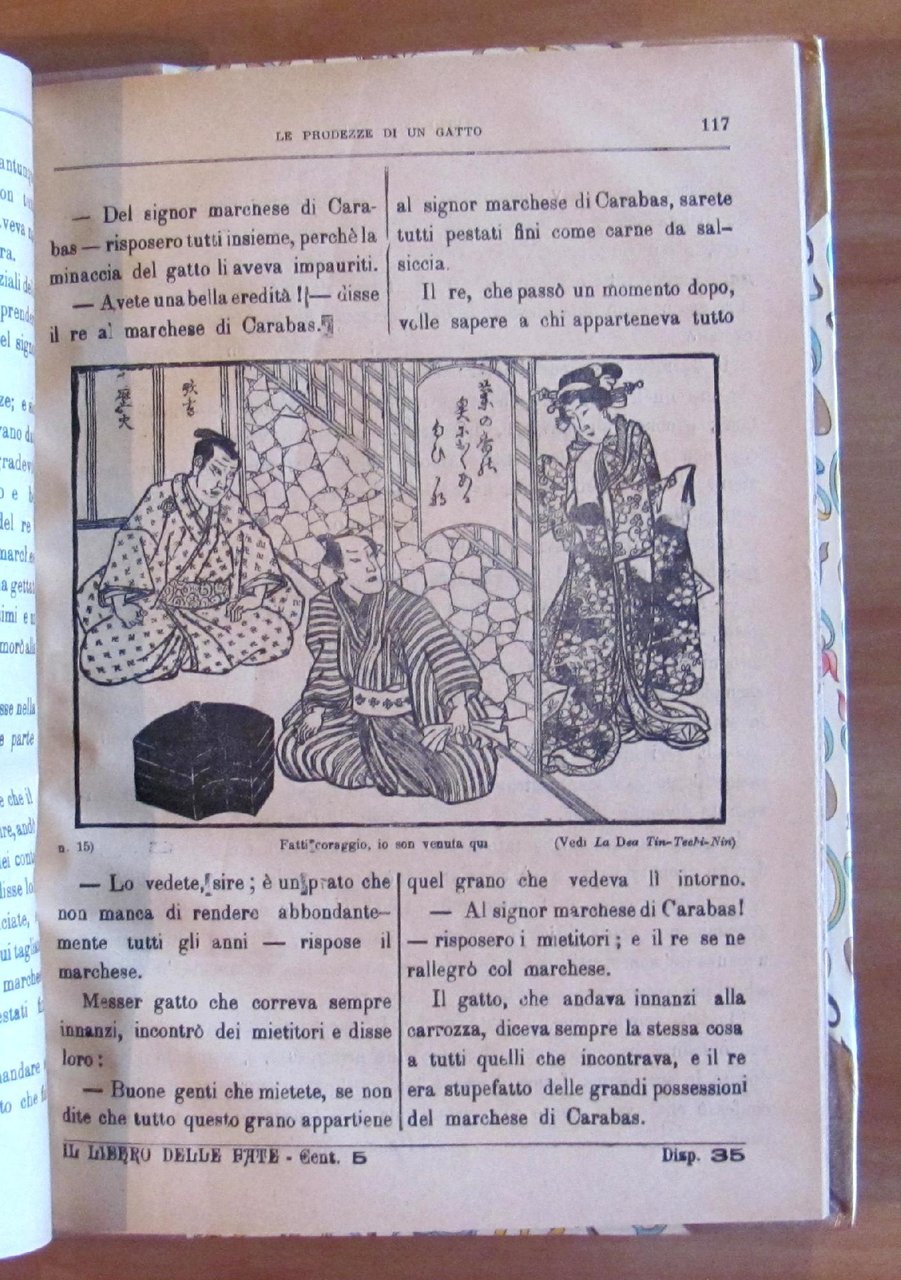 LE PRODEZZE DI UN GATTO
117
— Del signor marchese di Cara-
bas — risposero tutti insieme, perchè la
minaccia del gatto li aveva impauriti.
— Avete una bella eredità! — disse
il re al marchese di Carabas.
al signor marchese di Carabas, sarete
tutti pestati fini come carne da sal-
siccia.
Il re, che passò un momento dopo,
volle sapere a chi apparteneva tutto
n. 15)
Fatti coraggio, io son venuta qui
(Vedi La Dea Tin-Techi-Nin)
— Lo vedete, sire; è un prato che
non manca di rendere abbondante-
mente tutti gli anni — rispose il
marchese.
Messer gatto che correva sempre
innanzi, incontrò dei mietitori e disse
loro:
— Buone genti che mietete, se non
dite che tutto questo grano appartiene
quel grano che vedeva lì intorno.
— Al signor marchese di Carabas!
— risposero i mietitori; e il re se ne
rallegrò col marchese.
Il gatto, che andava innanzi alla
carrozza, diceva sempre la stessa cosa
a tutti quelli che incontrava, e il re
era stupefatto delle grandi possessioni
del marchese di Carabas.
IL LIBRO DELLE FATE - Cent. 5
Disp. 35